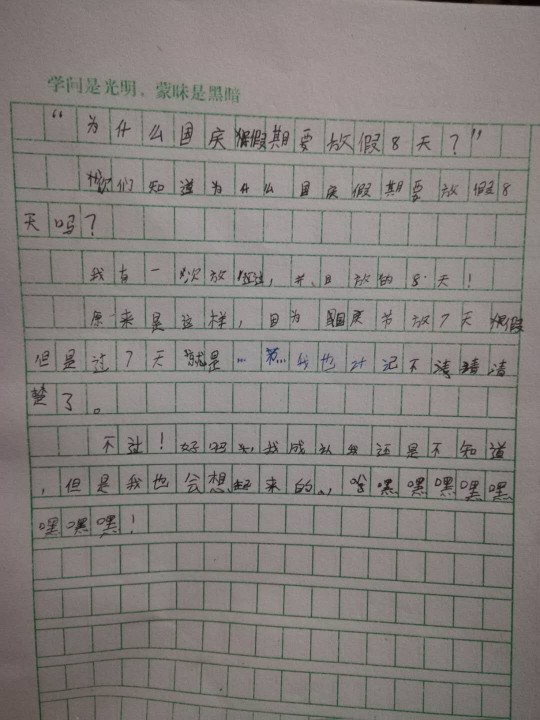 学问是光明、蒙昧是黑暗
“为什么国庆假期要放假8天？”
你们知道为什么国庆假期要放假8天吗？
我有一次放假，并且放的8天！
原来是这样，因为国庆节放7天假
但是过7天就是…我也计记不清清
楚了。
不过！好吧，我成认我还是不知道
，但是我也会想起来的，哈嘿嘿嘿嘿嘿
嘿嘿嘿！